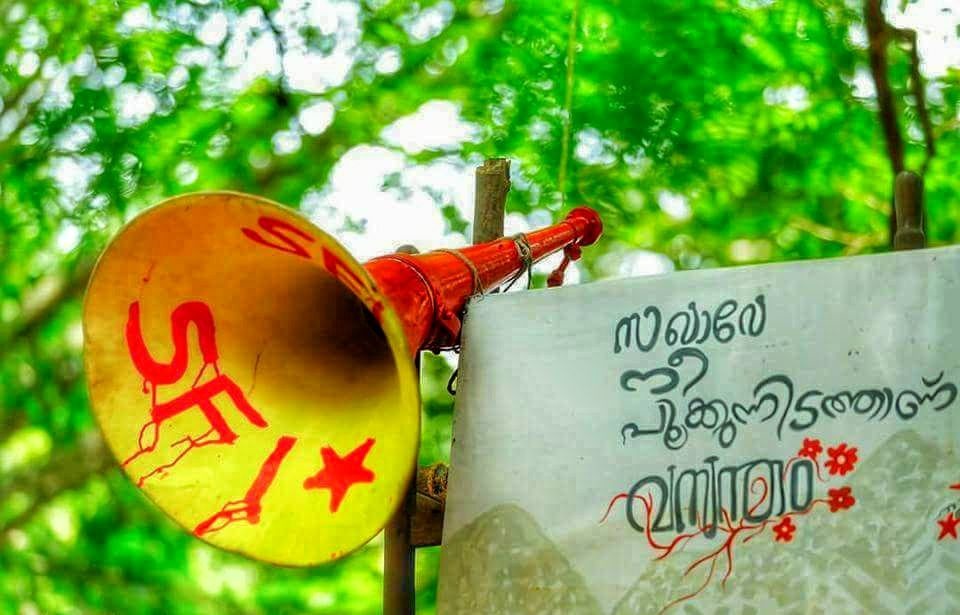 SFI
SFI
സഖാവേ
നീ
പൂക്കുന്നിടത്താണ്
വസന്തം